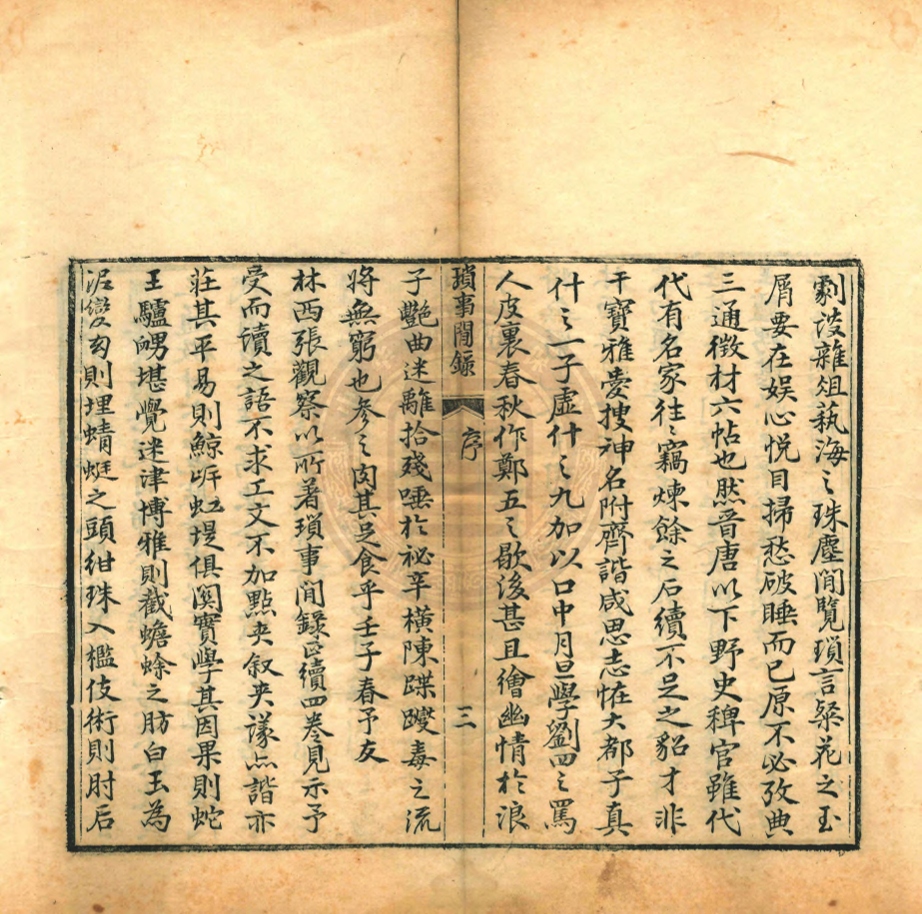 劇談雜俎執海之珠塵閒覽瑣言粲花之玉
屑要在娛心悅目掃愁破睡而已原不必攷典
三通徵材六帖也然晉唐以下野史稗官雖代
代有名家往〻竊煉餘之石續不足之貂才非
干寶雅愛搜神名附齊諧咸思志恠大都子真
什之一子虛什之九加以口中月旦學劉四之罵
人皮裏春秋作鄭五之歇後甚且繪幽情於浪
瑣事閒錄
序
三
子艷曲迷離拾殘唾於祕辛橫陳蹀躞毒之流
將無窮也參之肉其足食乎壬子春予友
林西張觀察以所著瑣事閒錄正續四卷見示予
受而讀之語不求工文不加點夾叙夾議亦諧亦
莊其平易則鯨岓虹堤俱闃實學其因果則蛇
王驢甥堪覺迷津博雅則截蟾蜍之肪白玉為
泥變幻則埋蜻蜓之頭紺珠入檻伎術則肘后